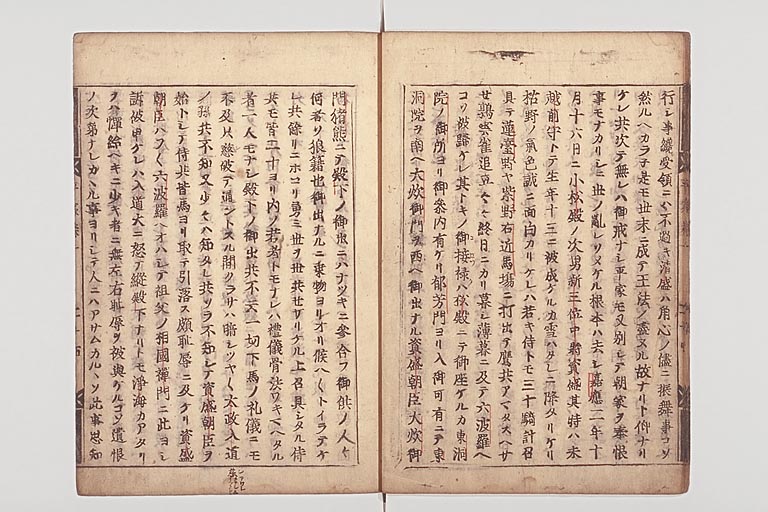 行レ事纔受領ニハ不過キ清盛ハ角心ノ儘ニ振舞事コソ
然ルヘカラネ是モ世末ニ成テ王法ノ盡ヌル故ナリト仰ナリ
ケレ共次テ無レハ御戒ナシ平家モ又別シテ朝家ヲ奉恨
事モナカリシニ世ノ亂レソメケル根本ハ去シ嘉應二年十
月十六日ニ小松殿ノ次男新三位中將資盛其時ハ未
越前守トテ生年十三ニ被成ケルカ雪ハタレニ降タリケリ
枯野ノ氣色誠ニ面白カリケレハ若キ侍トモ三十騎計召
具テ蓮臺野ヤ紫野右近馬場ニ打出テ鷹共アマタスヘサ
セ鶉雲雀追立々々終日ニカリ暮シ薄暮ニ及テ六波羅ヘ
コソ被歸ケレ其トキノ御接禄ハ松殿ニテ御座ケルカ東洞
院ノ御所ヨリ御參内有ケリ郁芳門ヨリ入御可有ニテ東
洞院ヲ南ヘ大炊御門ヲ西ヘ御出ナル資盛朝臣大炊御
門猪熊ニテ殿下ノ御出ニハナツキニ參合フ御供ノ人々
何者ソ狼籍也御出ナルニ乗物ヨリオリ候ヘ〱トイラテケ
レ共餘リニホコリ勇ミ世ヲ世共せサリケル上召具シタル侍
共モ皆二十ヨリ内ノ若者トモナレハ禮儀骨法ワキマヘタル
者一人モナシ殿下ノ御出共不云一切下馬ノ礼儀ニモ
不及只懸破テ通ントスル間クラサハ暗シツヤ〱太政入道
ノ孫共不知又少々ハ知タレ共ソラ不知シテ資盛朝臣ヲ
始トシテ侍共皆馬ヨリ取テ引落ス頗耻辱ニ及ケリ資盛
朝臣ハフ〱六波羅ヘオハシテ祖父ノ相國禪門ニ此ヨシ
訴被申ケレハ入道大ニ怒テ縱殿下ナリトモ淨海カアタリ
ヲハ憚給ヘキニ少キ者ニ無左右耻辱ヲ被與ケルコソ遺恨
ノ次第ナレカヽル事ヨリシテ人ニハアサムカルヽソ此事思知